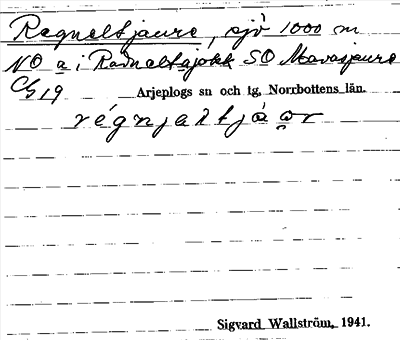 Regneltjaure, sjö 1000 m
NO a i Radneltsajåkk SO Mavasjaure
C/g 19 Arjeplogs sn och tg, Norrbottens län.
régnjaltjàor
Sigvard Wallström, 1941.